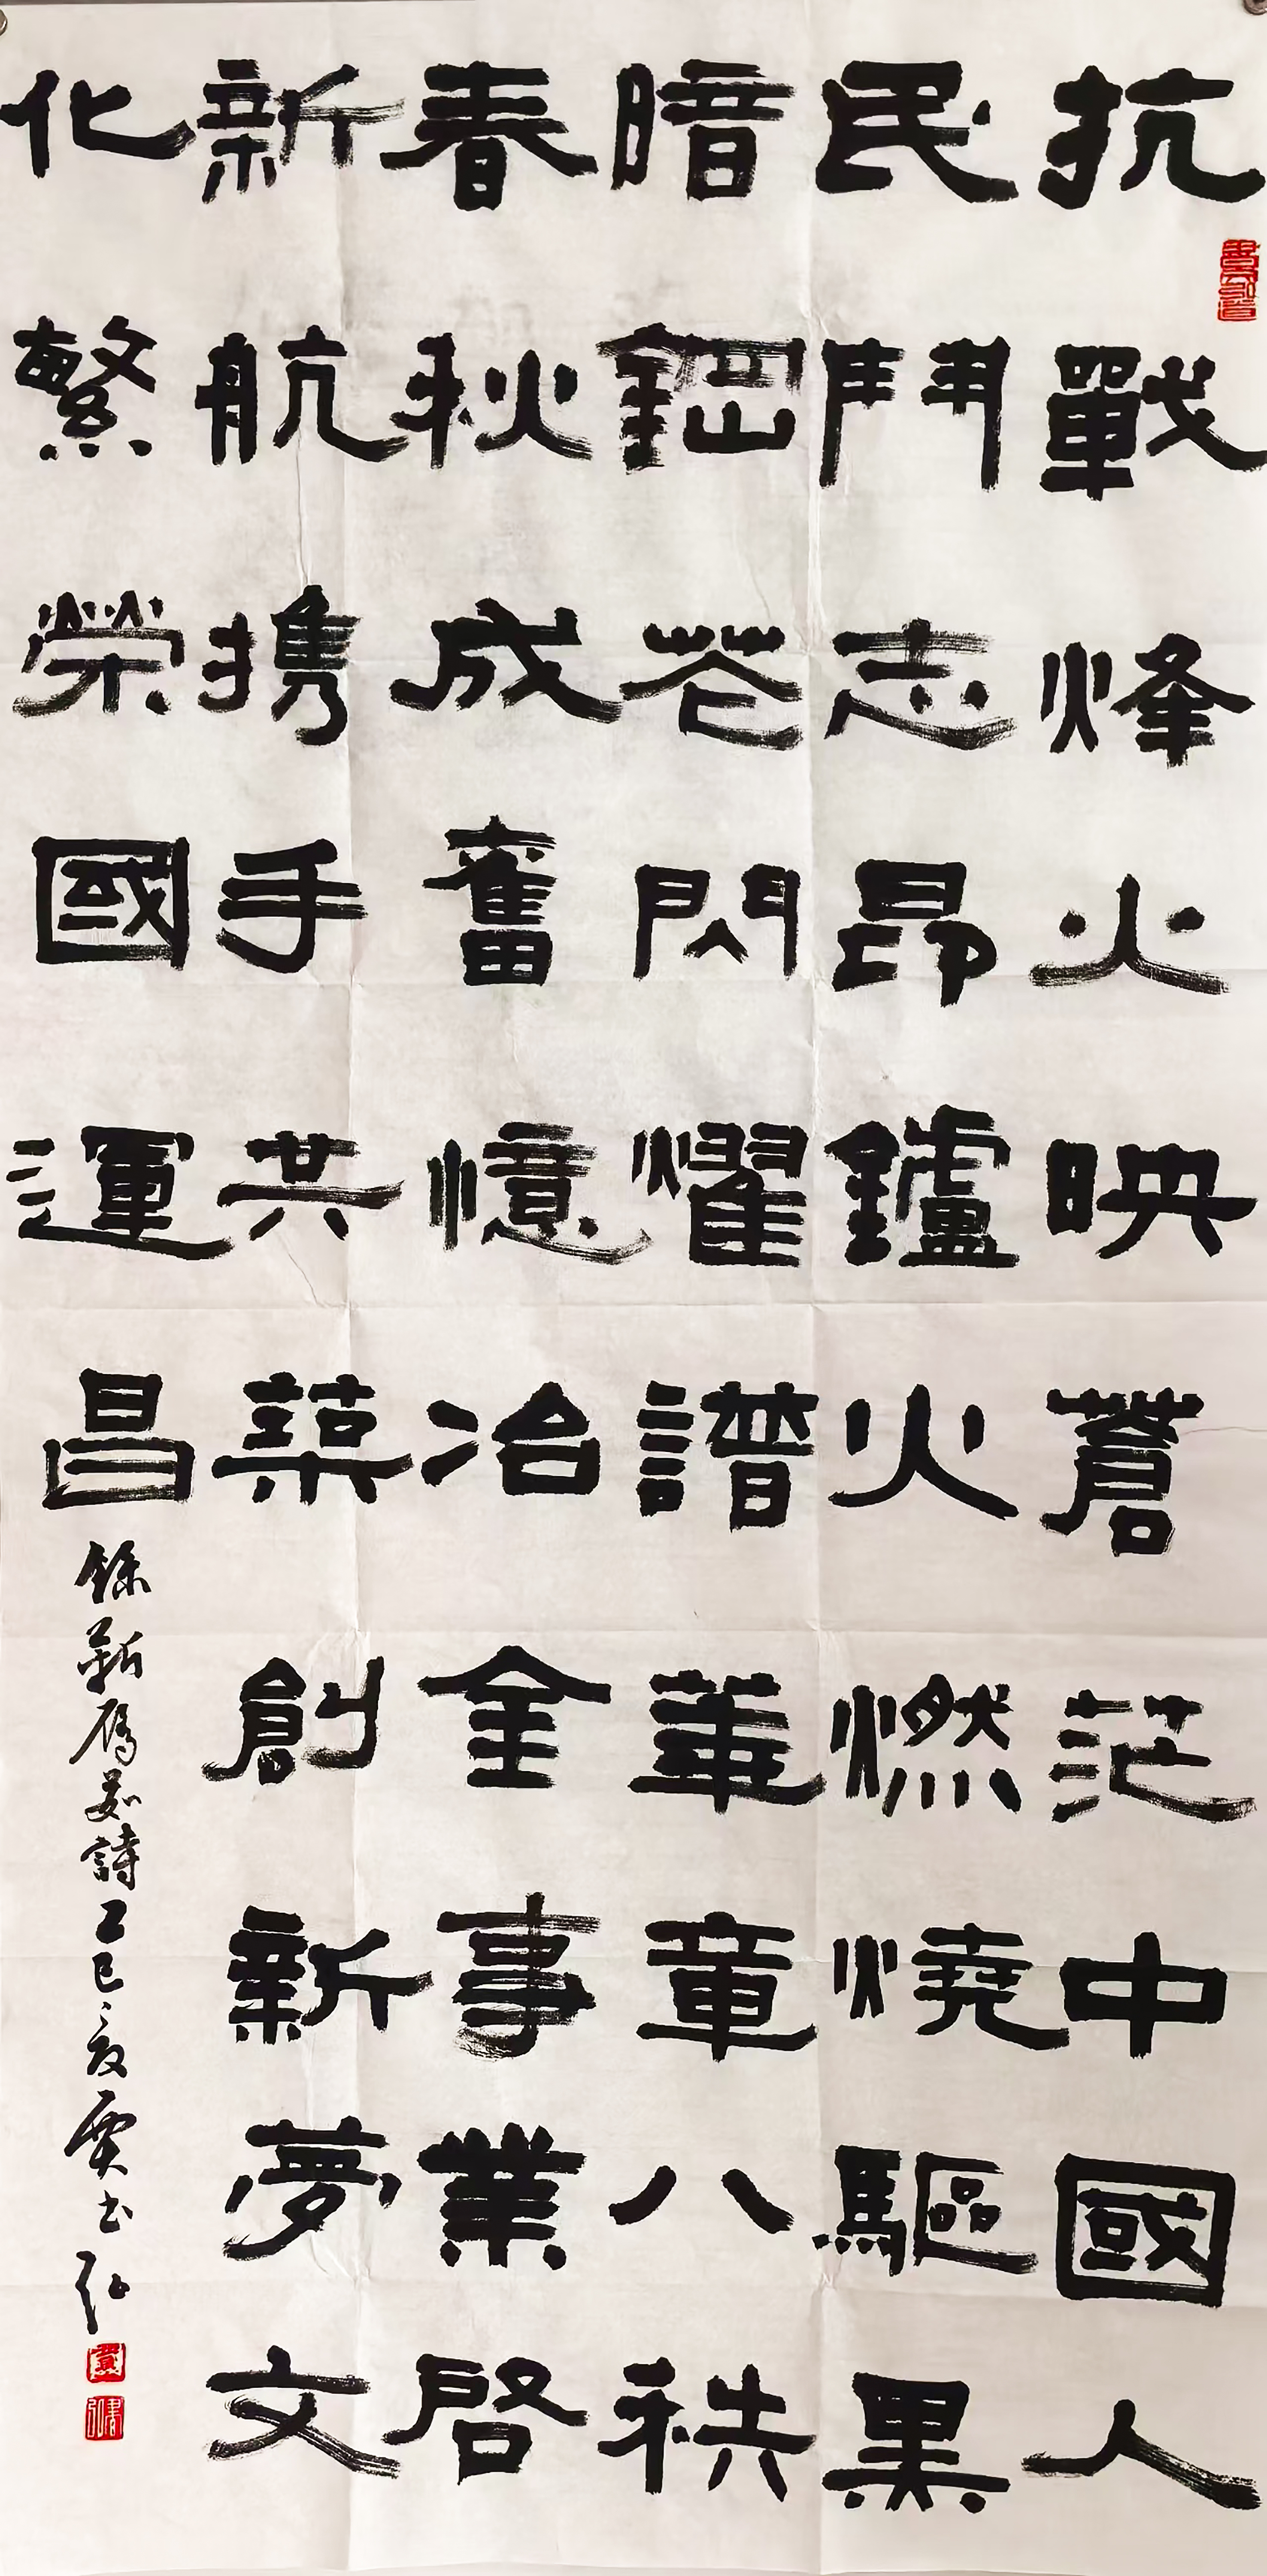 抗戰烽火映蒼茫中國人
民鬥志昂鑪火燃燒驅黑
暗鋼花閃耀譜華章八秩
春秋成奮憶冶金事業啓
新航携手共築創新夢文
化繁榮國運昌
詩乙巳夏賈书